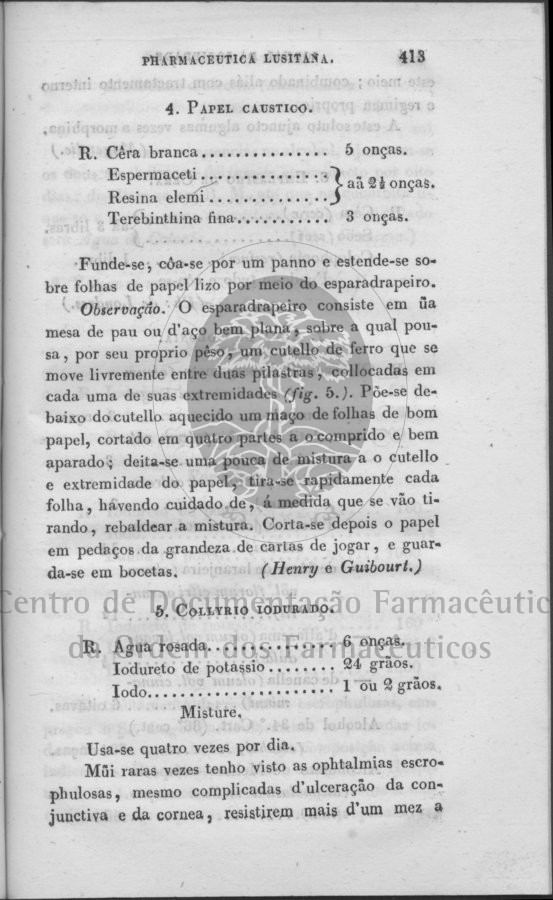 PHARMACEUTICA LUSITANA. 413
4. PAPEL CAUSTICO.
R. Cêra branca............... 5 onças.
Espermaceti............
Resina elemi............ } aã 2½ onças.
Terebinthina fina.......... 3 onças.
Funde-se, côa-se por um panno e estende-se so-
bre folhas de papel lizo por meio do esparadrapeiro.
Observação. O esparadrapeiro consiste em ũa
mesa de pau ou d'aço bem plana, sobre a qual pou-
sa, por seu proprio pêso, um cutello de ferro que se
move livremente entre duas pilastras, collocadas em
cada uma de suas extremidades (fig. 5.). Põe-se de-
baixo do cutello aquecido um maço de folhas de bom
papel, cortado em quatro partes a o comprido e bem
aparado; deita-se uma pouca de mistura a o cutello
e extremidade do papel, tira-se rapidamente cada
folha, havendo cuidado de, á medida que se vão ti-
rando, rebaldear a mistura. Corta-se depois o papel
em pedaços da grandeza de cartas de jogar, e guar-
da-se em bocetas. (Henry e Guibourt.)
Centro de Documentação Farmacêutic
da Ordem dos Farmacêuticos
5. COLLYRIO IODURADO.
R. Agua rosada............... 6 onças.
Iodureto de potassio......... 24 grãos.
Iodo..................... 1 ou 2 grãos.
Misture.
Usa-se quatro vezes por dia.
Mũi raras vezes tenho visto as ophtalmias escro-
phulosas, mesmo complicadas d'ulceração da con-
junctiva e da cornea, resistirem mais d'um mez a